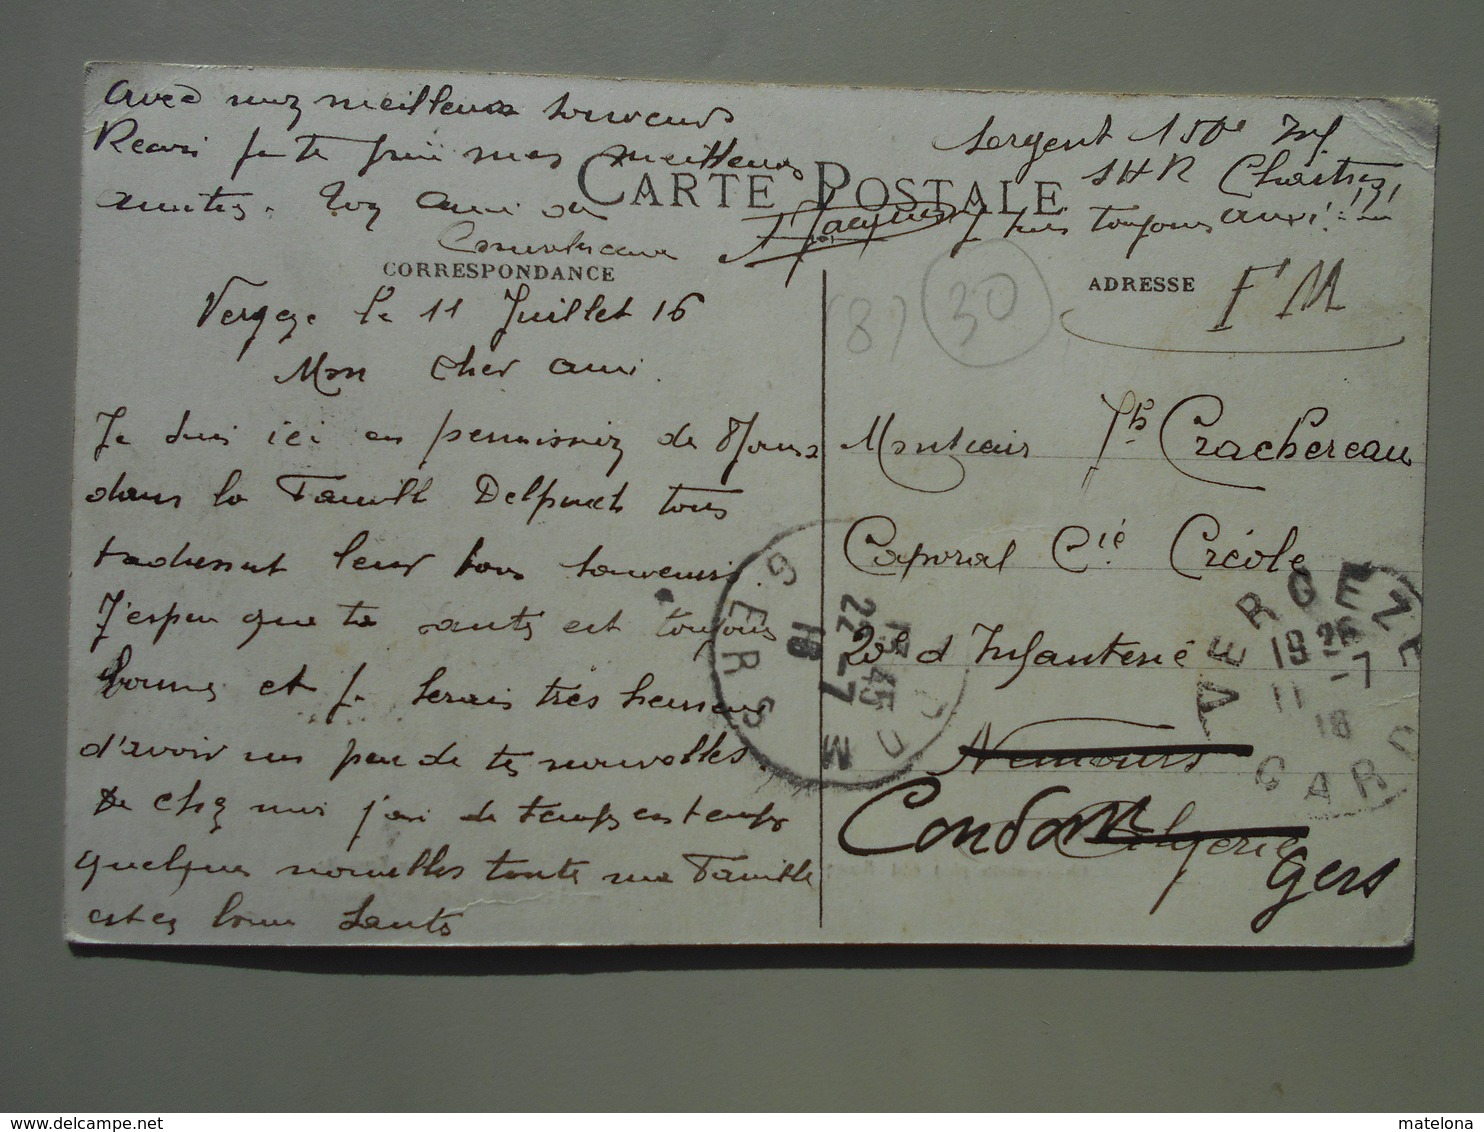 avec mes meilleurs souvenirs
Reçois je te prie mes meilleures
amitiés. Ton ami de
Sergent 150e Inf
SHR Chartres
J suis toujours aussi!!!!
CARTE POSTALE
CORRESPONDANCE
ADRESSE
FM
(8)
30
Vergeze le 11 Juillet 16
Mon cher ami.
Je suis ici en permission de 8 Jours
dans la Famille Delpuech tous
tadressent leur bons souvenirs.
J'espere que ta santé est toujours
bonne et je serais très heureux
d'avoir un peu de tes nouvelles.
De chez moi j'ai de temps en temps
quelques nouvelles toute ma Famille
est en bonne santé
Monsieur Jh Crachereau
Caporal Cie Créole
2ol d Infanterie
Nemours
Algérie
Condom
Gers
VERGEZE
19 26
11 -7
16
GARD
CONDOM
13 45
22 -7
16
GERS
matelona